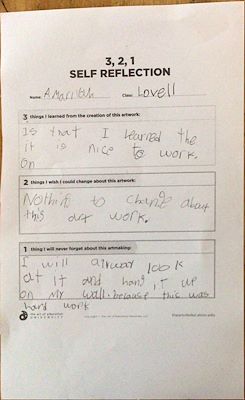 3, 2, 1
SELF REFLECTION
Name: Class: Lovell
3 things I learned from the creation of this artwork:
Is that I learned the
it is nice to work.
on
2 things I wish I could change about this artwork:
Nothing to change about
this art work.
1 thing I will never forget about this artmaking:
I will alrway look
at it and hang it up
on my wall. because this was
hard work
the art of education
UNIVERSITY